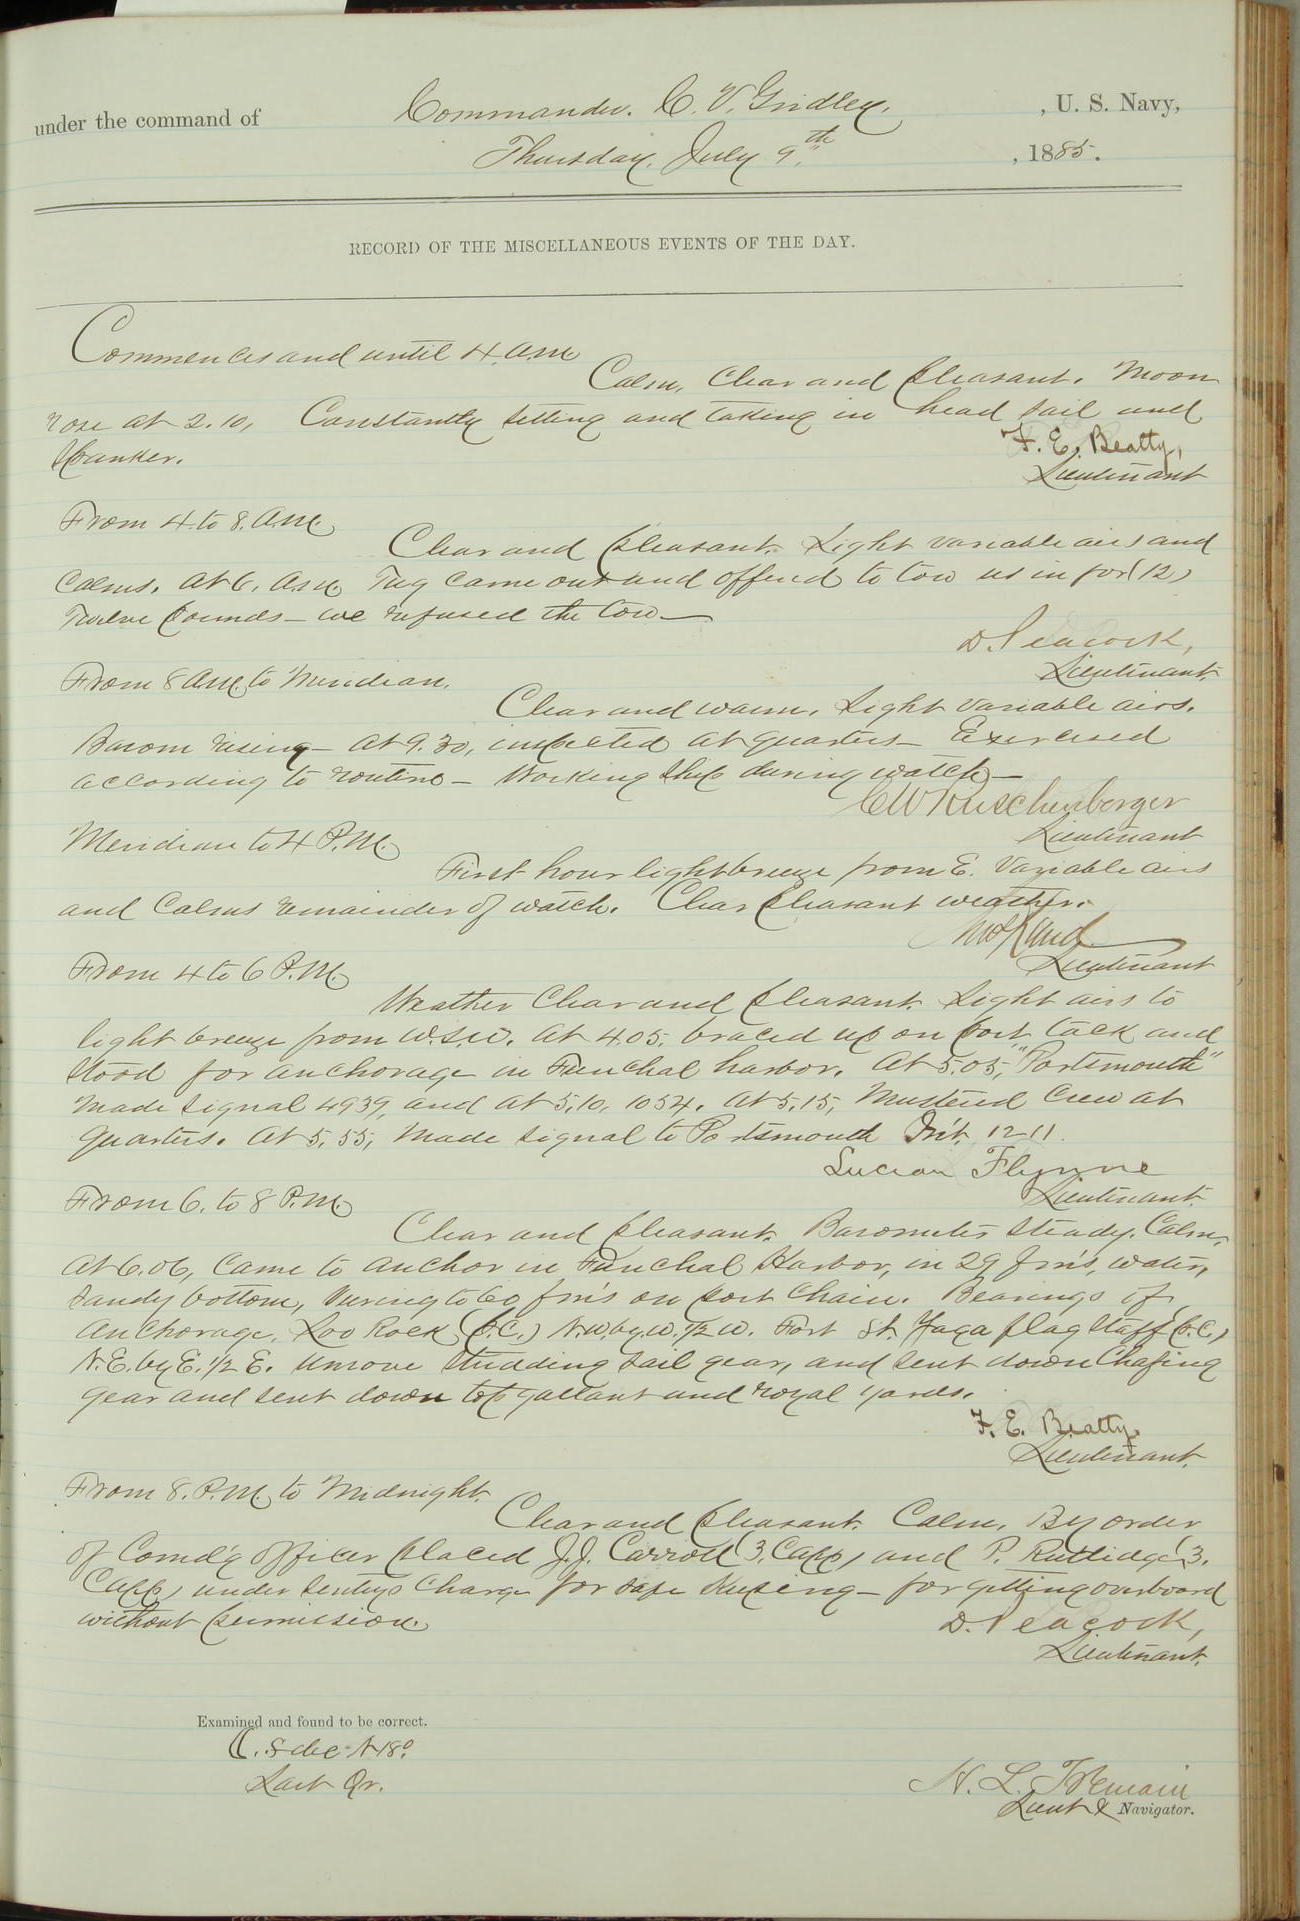 under the command of Commander. C. V. Gridley. , U. S. Navy,
Thursday, July 9th , 1885.
RECORD OF THE MISCELLANEOUS EVENTS OF THE DAY.
Commences and until 4. A.M.
Calm, Clear and pleasant. Moon
rose at 2.10, Constantly setting and taking in head sail and
Spanker.
F. E. Beatty,
Lieutenant
From 4. to 8. A.M.
Clear and pleasant. Light variable airs and
Calms. At 6. A.M. Tug came out and offered to tow us in for (12)
Twelve pounds — we refused the tow —
D. Peacock,
Lieutenant.
From 8 A.M. to Meridian.
Clear and warm. Light variable airs.
Barom rising — At 9.30, inspected at quarters — Exercised
according to routine — Working ship during watch —
C W Ruschenberger
Lieutenant
Meridian to 4 P.M.
First hour light breeze from E. Variable airs
and Calms remainder of watch. Clear pleasant weather.
Lieutenant
From 4 to 6 P.M.
Weather Clear and pleasant. Light airs to
light breeze from W.S.W. At 4.05, braced up on port tack and
Stood for anchorage in Funchal harbor. At 5.05, "Portsmouth"
made signal 4939, and at 5.10, 1054. At 5.15, Mustered Crew at
quarters. At 5.55, Made signal to Portsmouth Int. 1211.
Lucian Flynne
Lieutenant.
From 6. to 8 P.M.
Clear and pleasant. Barometer steady. Calm.
At 6.06, Came to anchor in Funchal Harbor, in 29 fms, water,
Sandy bottom, Veering to 60 fms on port Chain. Bearings of
Anchorage, Loo Rock (p.c.) N.W. by W. 1/2 W. Fort St. Yago flag staff (p.c.)
N.E. by E. 1/2 E. Unrove Studding sail gear, and sent down Chafing
gear and sent down top gallant and royal yards.
F. E. Beatty.
Lieutenant.
From 8. P.M. to Midnight.
Clear and pleasant. Calm. By order
of Comd'g officer placed J. J. Carroll (3. Capp) and P. Rutlidge (3.
Capp) under sentry's Charge for safe Keeping — for getting overboard
without permission.
D. Peacock,
Lieutenant.
Examined and found to be correct.
N 18°
Last Qr.
H. L. Tremain
Lieut & Navigator.